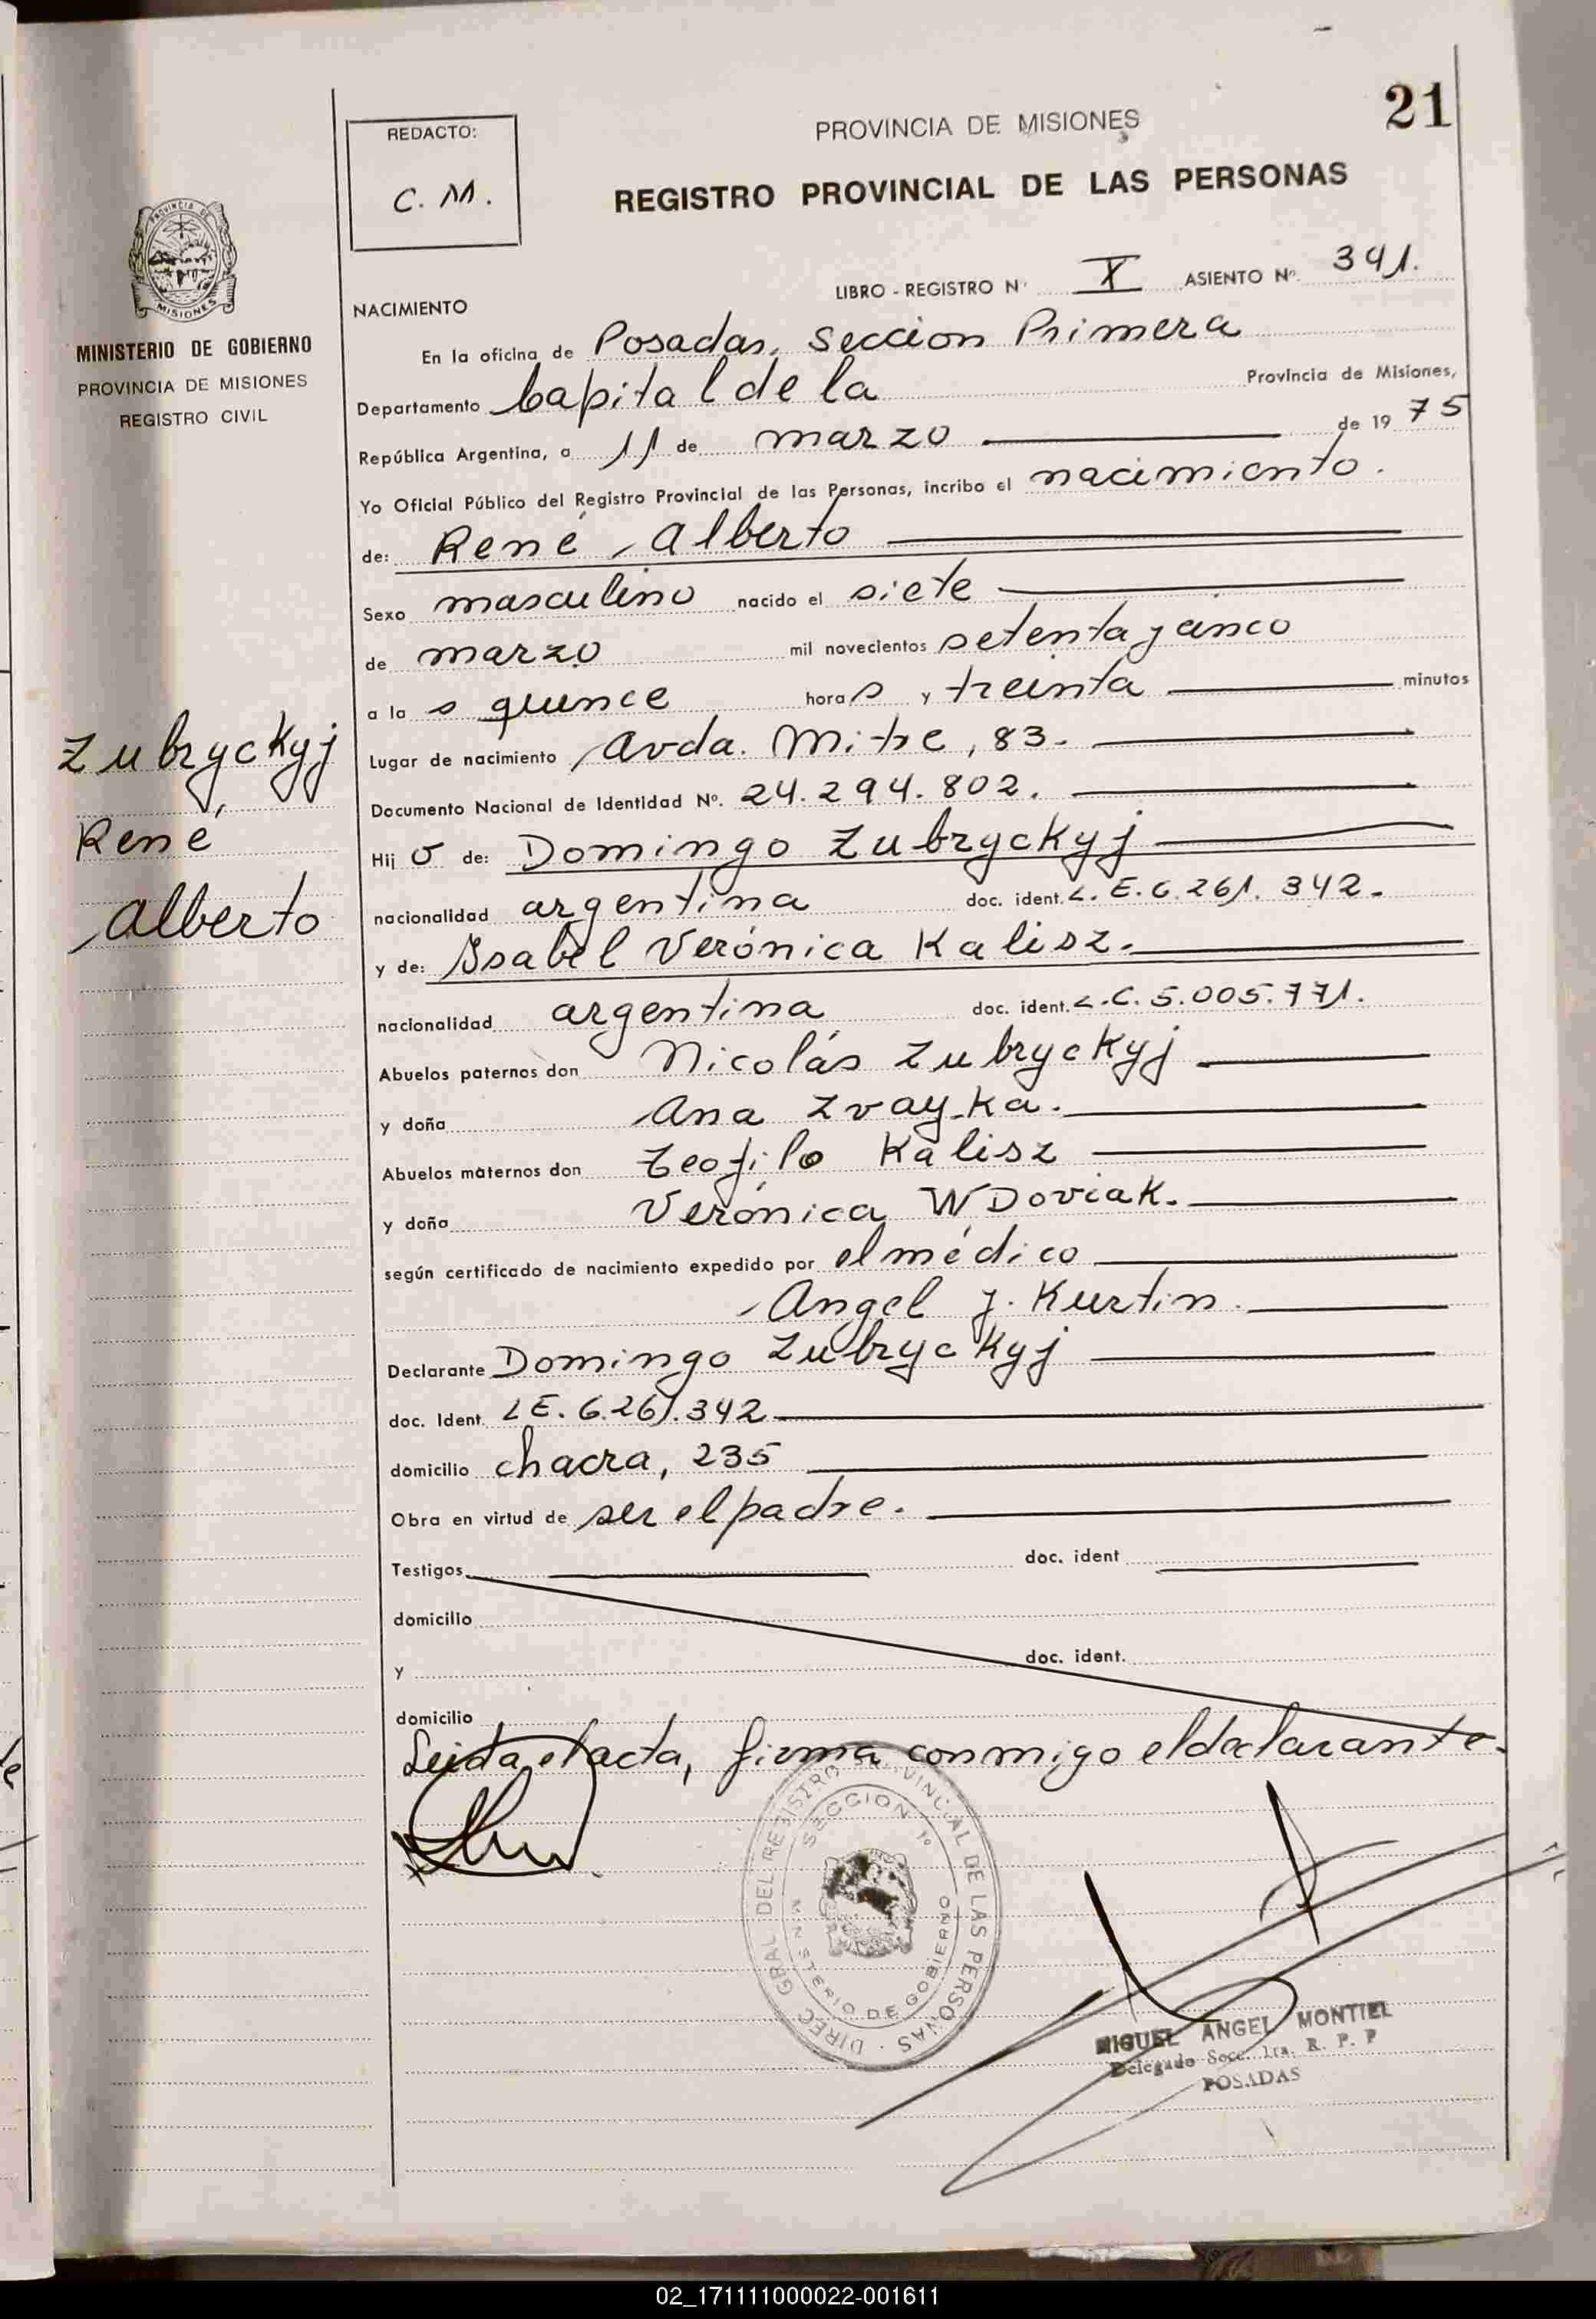 21
REDACTO:
C. M.
PROVINCIA DE MISIONES
REGISTRO PROVINCIAL DE LAS PERSONAS
PROVINCIA DE
MISIONES
MINISTERIO DE GOBIERNO
PROVINCIA DE MISIONES
REGISTRO CIVIL
LIBRO - REGISTRO Nº X ASIENTO Nº 391.
NACIMIENTO
En la oficina de Posadas, Sección Primera
Departamento Capital de la Provincia de Misiones,
República Argentina, a 11 de marzo de 19 75
Yo Oficial Público del Registro Provincial de las Personas, incribo el nacimiento.
de: René Alberto
Sexo masculino nacido el siete
de marzo mil novecientos setenta y cinco
a la s quince hora s y treinta minutos
Lugar de nacimiento Avda. Mitre, 83.
Documento Nacional de Identidad Nº. 24.294.802.
Hij o de: Domingo Zubryckyj
nacionalidad argentina doc. ident. L. E. 6.261.342.
y de: Isabel Verónica Kalisz.
nacionalidad argentina doc. ident. L.C. 5.005.771.
Abuelos paternos don Nicolás Zubryckyj
y doña Ana Zvayka.
Abuelos maternos don Teofilo Kalisz
y doña Verónica WDoviak.
según certificado de nacimiento expedido por el médico
Angel J. Kurtin.
Declarante Domingo Zubryckyj
doc. Ident. LE. 6.261.342
domicilio chacra, 235
Obra en virtud de ser el padre.
Testigos doc. ident
domicilio
y doc. ident.
domicilio
Leida el acta, firma conmigo el declarante.
Zubryckyj
René
Alberto
DIREC. GRAL. DEL REGISTRO PROVINCIAL DE LAS PERSONAS
SECCION 1º
MINISTERIO DE GOBIERNO
MIGUEL ANGEL MONTIEL
Delegado Secc. 1ra. R. P. P
POSADAS
02_171111000022-001611